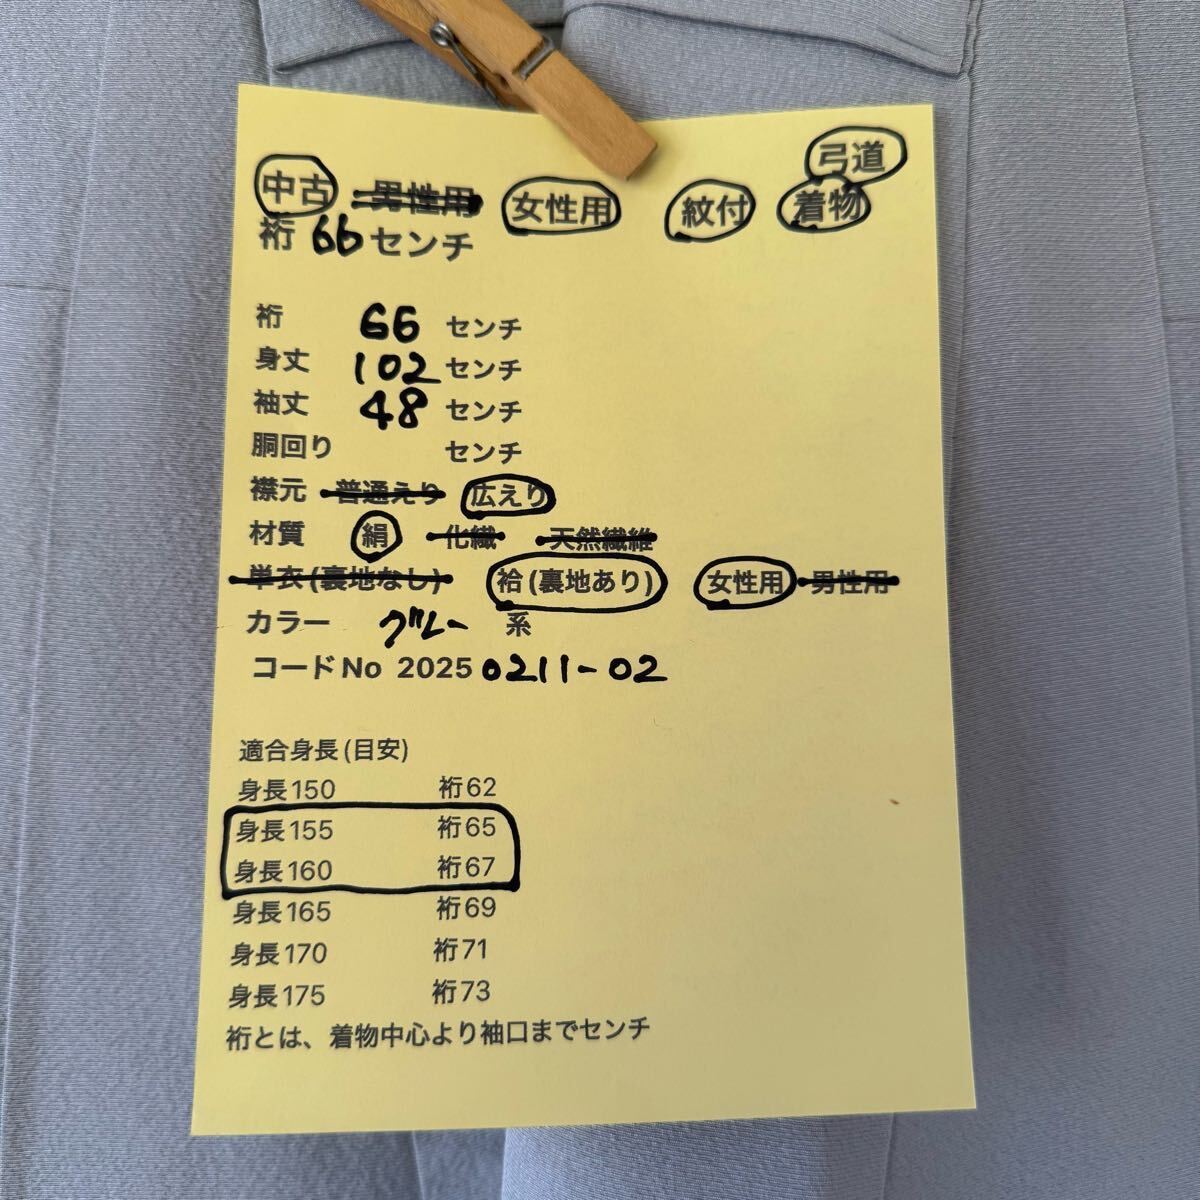 弓道
中古 男性用 女性用 紋付 着物
裄 66 センチ
裄 66 センチ
身丈 102 センチ
袖丈 48 センチ
胴回り センチ
襟元 普通えり 広えり
材質 絹 化繊 天然繊維
単衣(裏地なし) 袷(裏地あり) 女性用 男性用
カラー グレー 系
コードNo 2025 0211-02
適合身長(目安)
身長150 裄62
身長155 裄65
身長160 裄67
身長165 裄69
身長170 裄71
身長175 裄73
裄とは、着物中心より袖口までセンチ